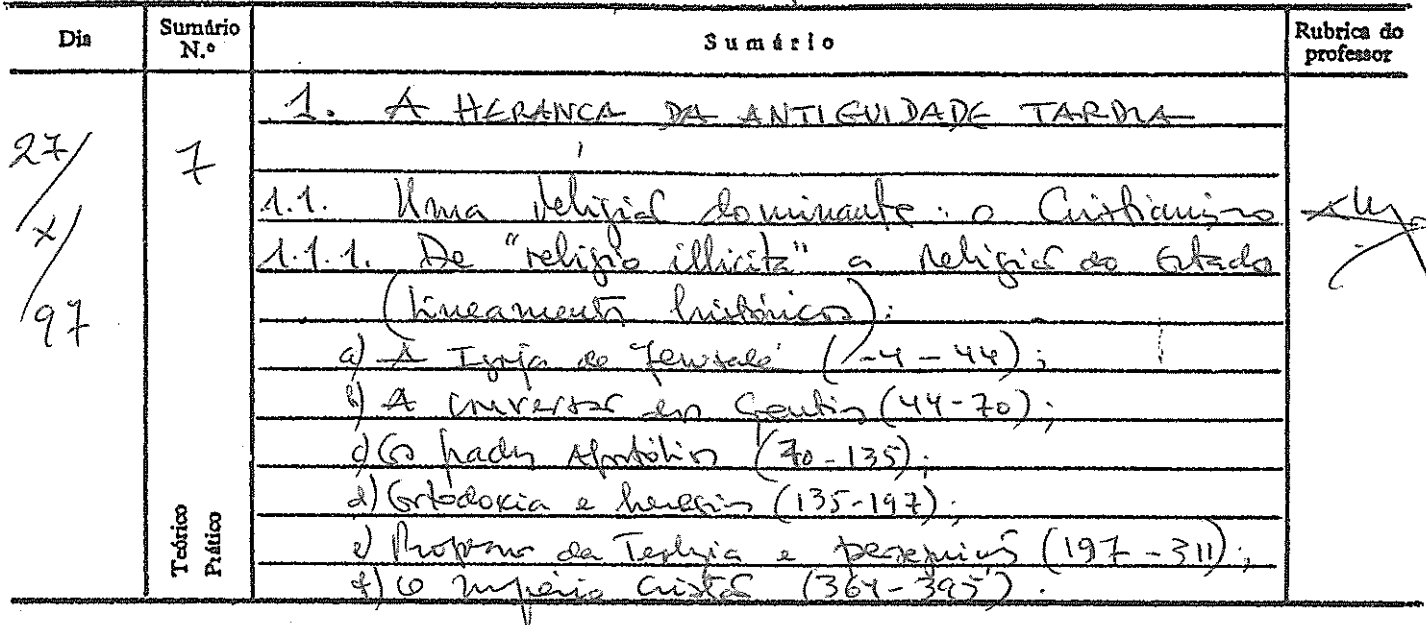 Dia
Sumário N.º
Sumário
Rubrica do professor
27/X/97
7
Teórico
Prático
1. A HERANÇA DA ANTIGUIDADE TARDIA
1.1. Uma religião dominante: o Cristianismo
1.1.1. De "religio illicita" a religião do Estado
(lineamentos históricos):
a) A Igreja de Jerusalé (-4 - 44);
b) A conversão dos Gentios (44-70);
c) Os padres Apostólicos (70-135);
d) Ortodoxia e heresias (135-197);
e) Progresso da Teologia e perseguições (197-311);
f) O Império Cristão (364-395).